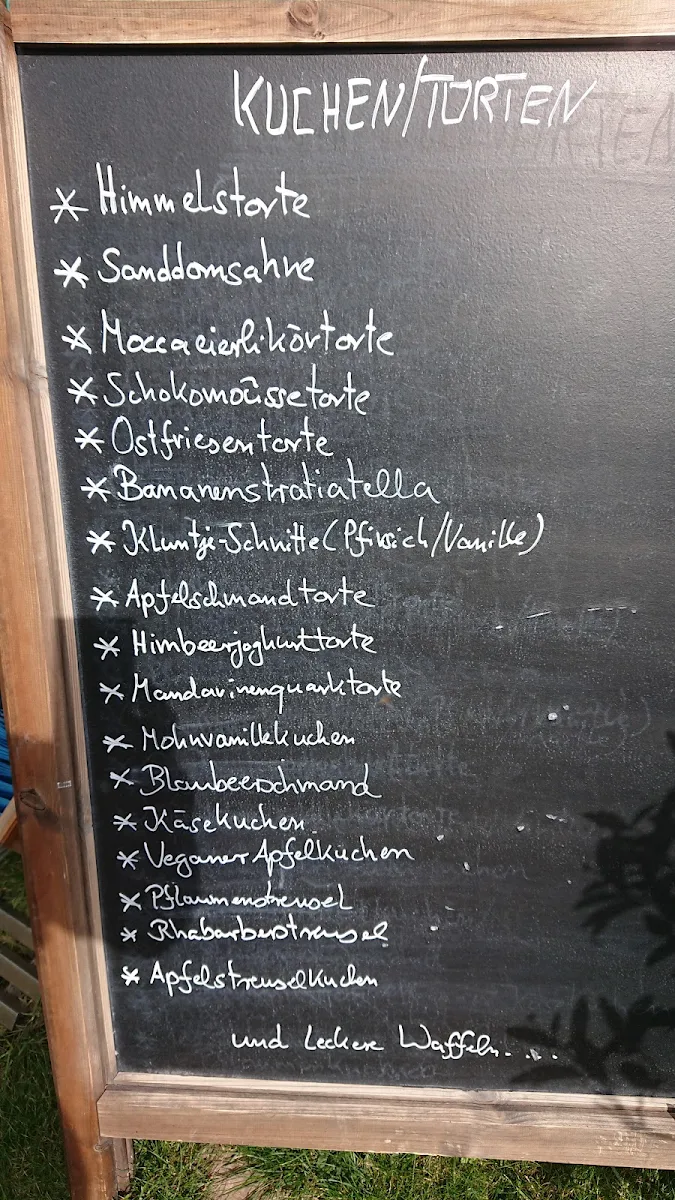 KUCHEN/TORTEN
* Himmelstorte
* Sanddornsahne
* Moccaeierlikörtorte
* Schokomoussetorte
* Ostfriesentorte
* Bananenstratiatella
* Kluntje-Schnitte (Pfirsich/Vanille)
* Apfelschmandtorte
* Himbeerjoghurttorte
* Mandarinenquarktorte
* Mohnvanillekuchen
* Blaubeerschmand
* Käsekuchen
* Veganer Apfelkuchen
* Pflaumenstreusel
* Rhabarberstreusel
* Apfelstreuselkuchen
und leckere Waffeln....